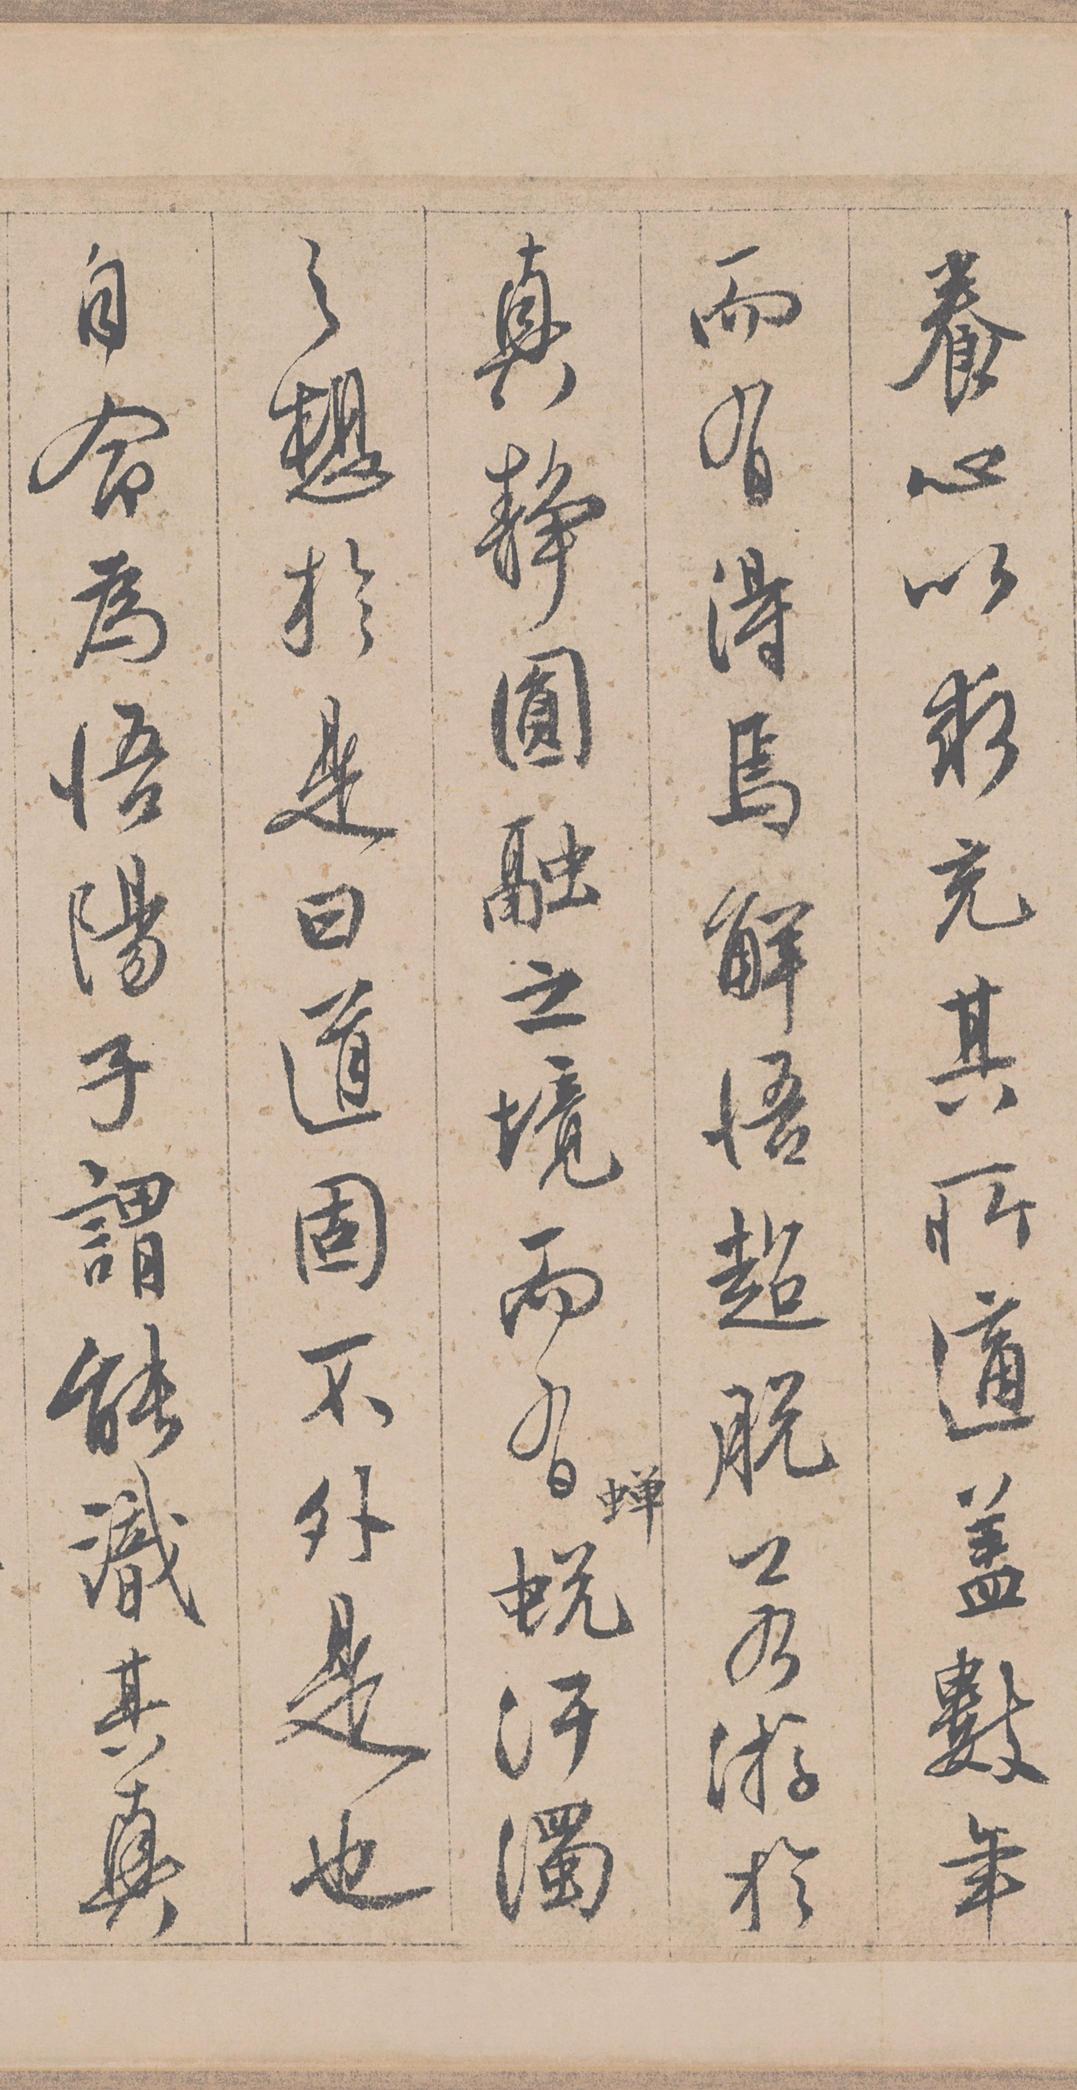 養心以求充其所適蓋數年
而有得焉解悟超脱又若游於
真静圓融之境而有蟬蜕汙濁
之想於是曰道固不外是也
自命為悟陽子謂能識其真